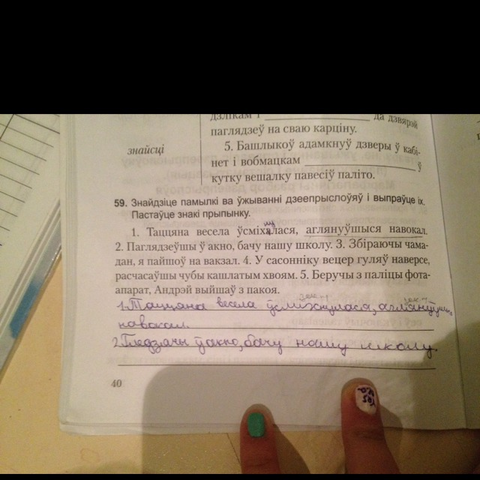 дзлікам і да дзвярэй
паглядзеў на сваю карціну.
знайсці
5. Башлыкоў адамкнуў дзверы ў кабі-
нет і вобмацкам ў
кутку вешалку павесіў паліто.
59. Знайдзіце памылкі ва ўжыванні дзеепрыслоўяў і выпраўце іх.
Пастаўце знакі прыпынку.
1. Таццяна весела ўсміхалася, аглянуўшыся навокал.
ну
2. Паглядзеўшы ў акно, бачу нашу школу. 3. Збіраючы чама-
дан, я пайшоў на вакзал. 4. У сасонніку вецер гуляў наверсе,
расчасаўшы чубы кашлатым хвоям. 5. Беручы з паліцы фота-
апарат, Андрэй выйшаў з пакоя.
1. Таццяна весела ўсміхнулася, аглянуўшыся
навокал.
2. Гледзячы ў акно, бачу нашу школу.
40